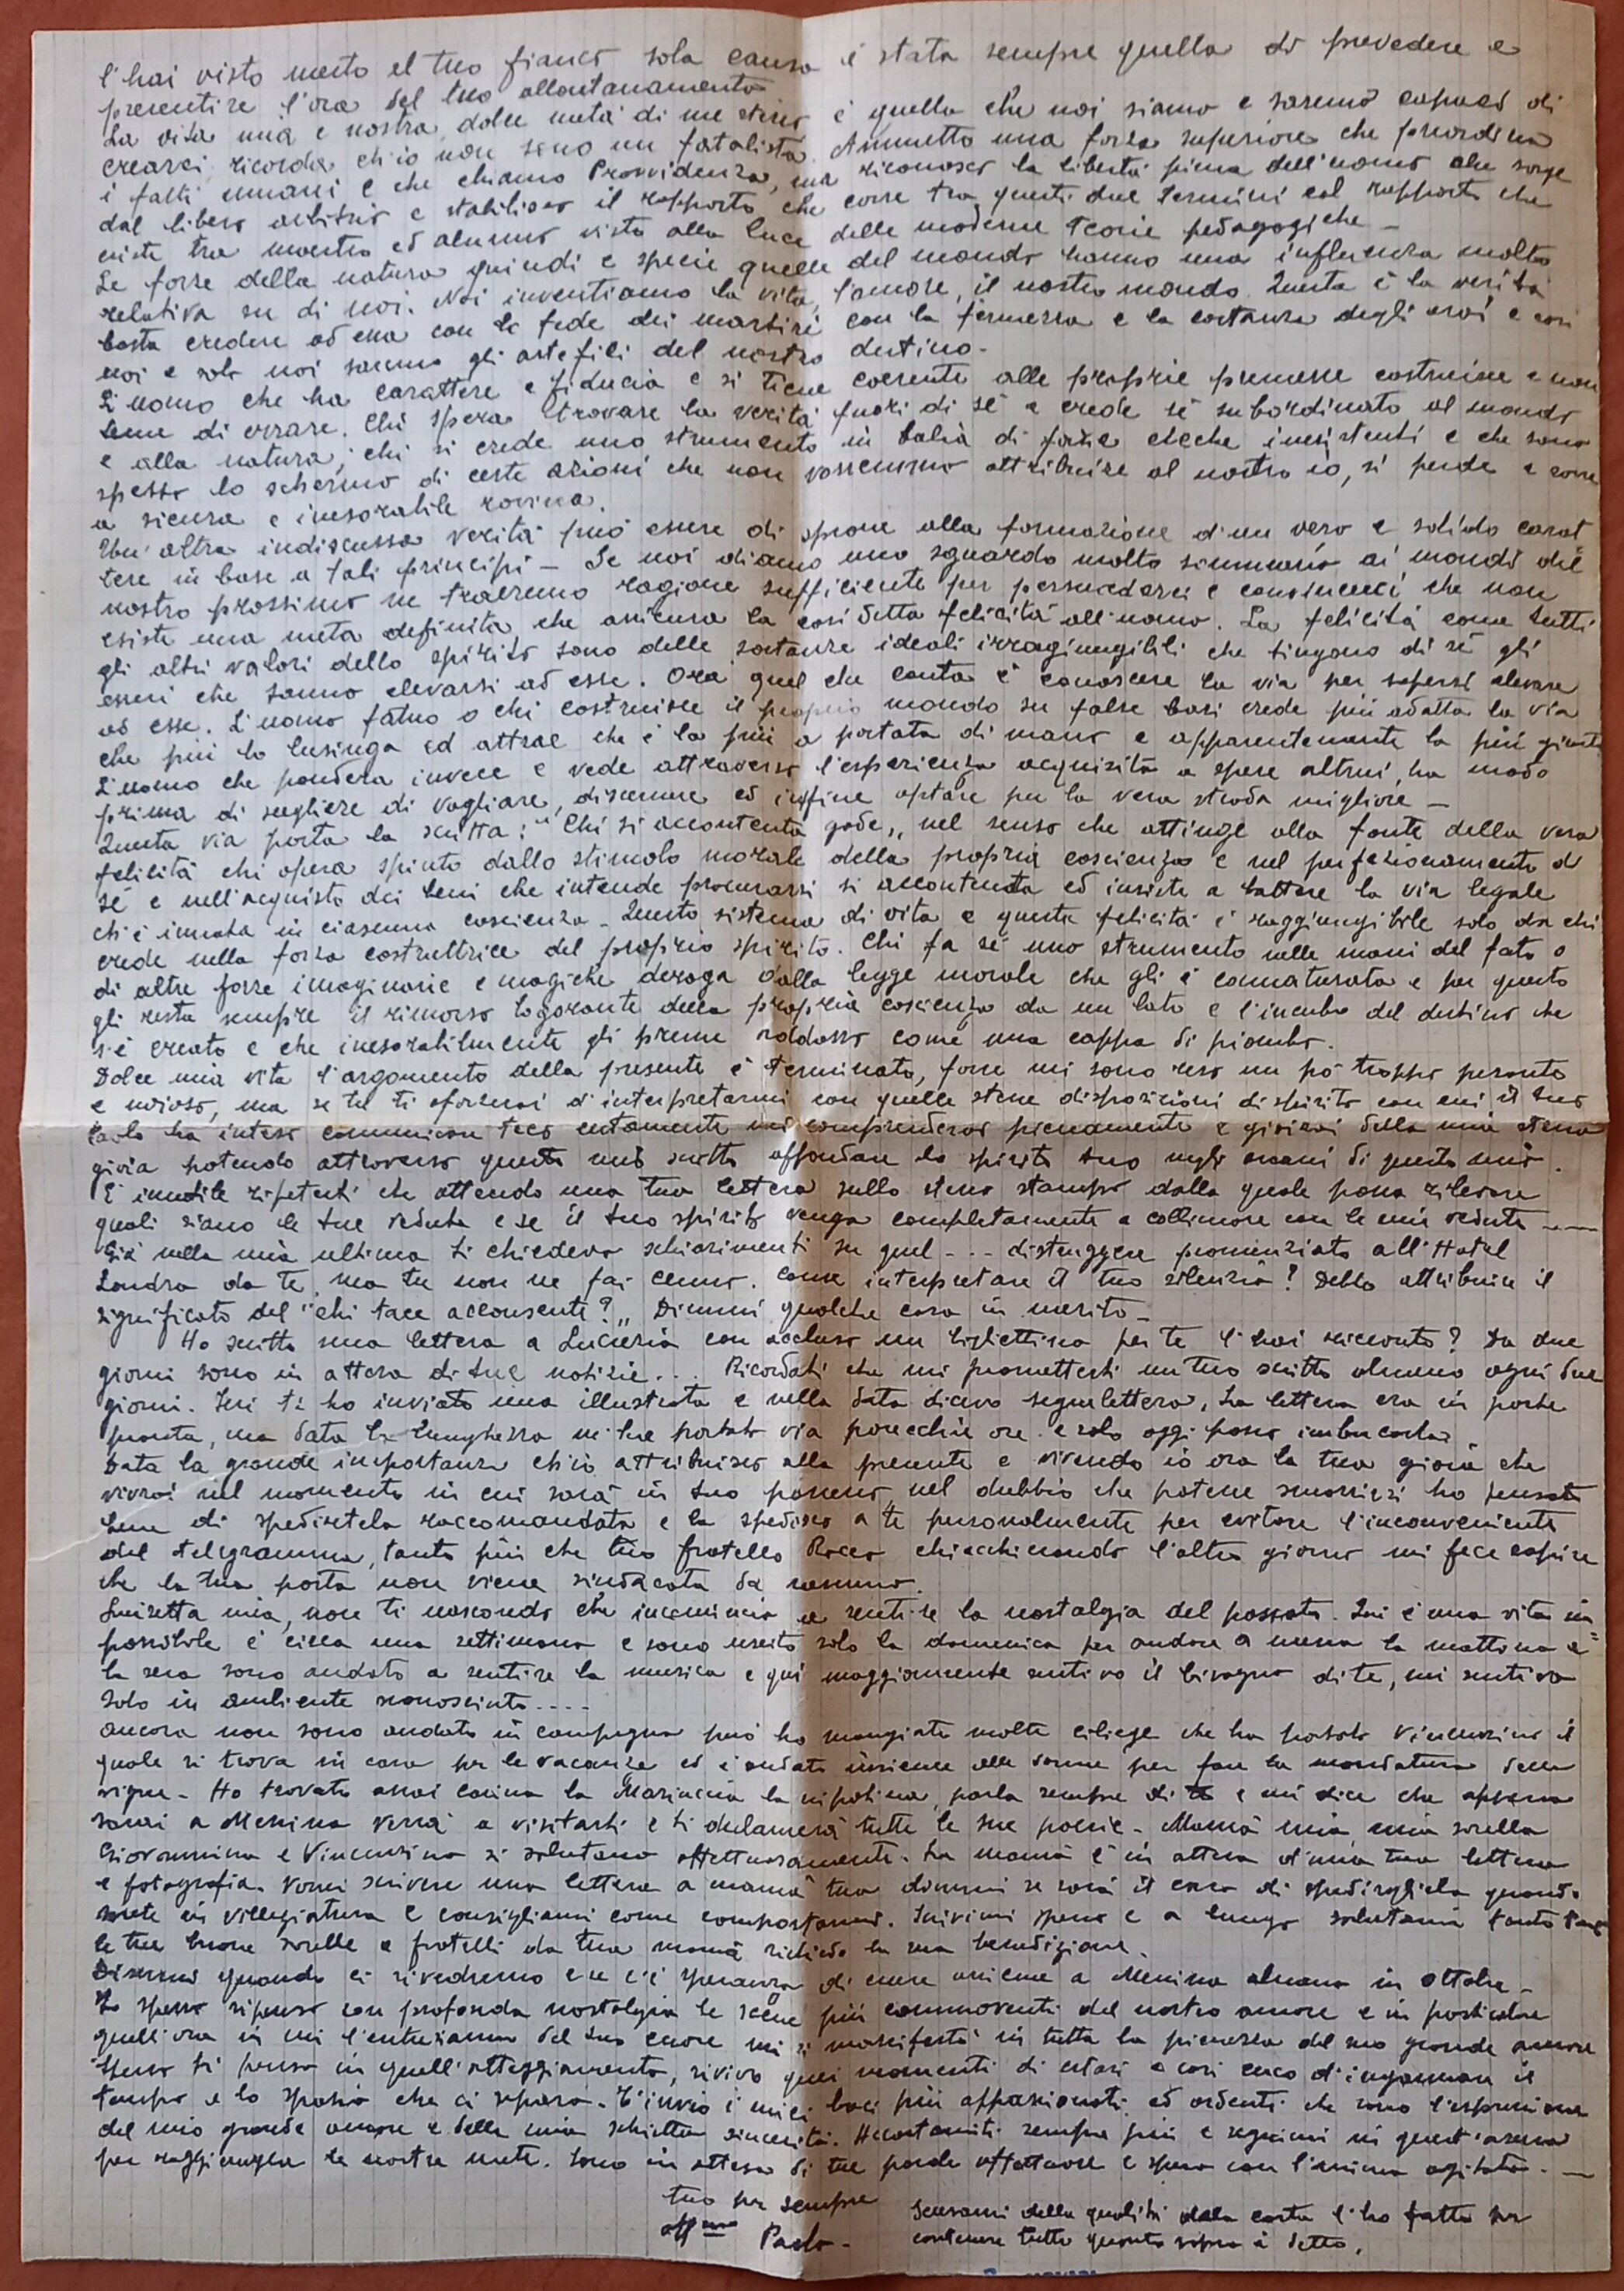 l'hai visto mesto al tuo fianco sola causa è stata sempre quella di prevedere e
presentire l'ora del tuo allontanamento
La vita mia e nostra, dolce metà di me stesso è quella che noi siamo e saremo capaci di
crearci; ricorda ch'io non sono un fatalista. Ammetto una forza superiore che preordina
i fatti umani e che chiamo Provvidenza, ma riconosco la libertà piena dell'uomo che sorge
dal libero arbitrio e stabilisco il rapporto che corre tra questi due termini col rapporto che
esiste tra maestro ed alunno visto alla luce delle moderne teorie pedagogiche -
Le forze della natura quindi e specie quelle del mondo hanno una influenza molto
relativa su di noi. Noi inventiamo la vita, l'amore, il nostro mondo. Questa è la verità
basta credere ad essa con la fede dei martiri con la fermezza e la costanza degli eroi e così
noi e solo noi saremo gli artefici del nostro destino -
L'uomo che ha carattere e fiducia e si tiene coerente alle proprie premesse costruisce e non
teme di errare. Chi spera trovare la verità fuori di sé e crede sé subordinato al mondo
e alla natura; chi si crede uno strumento in balia di forze cieche inesistenti e che sono
spesso lo schermo di certe azioni che non vorremmo attribuire al nostro io, si perde e corre
a sicura e inesorabile rovina.
Un'altra indiscussa verità può essere di sprone alla formazione d'un vero e solido carat
tere in base a tali principi - Se noi diamo uno sguardo molto sommario ai mondi del
nostro prossimo ne trarremo ragione sufficiente per persuaderci e convincerci che non
esiste una meta definita che assicura la così detta felicità all'uomo. La felicità come tutti
gli altri valori dello spirito sono delle sostanze ideali irragiungibili che tingono di sé gli
esseri che sanno elevarsi ad esse. Ora quel che conta è conoscere la via per sapersi elevare
ad esse. L'uomo fatuo o chi costruisce il proprio mondo su false basi crede più adatta la via
che più lo lusinga ed attrae che è la più a portata di mano e apparentemente la più giusta
L'uomo che pondera invece e vede attraverso l'esperienza acquisita a spese altrui, ha modo
prima di scegliere di vagliare, discernere ed infine optare per la vera strada migliore -
Questa via porta la scritta: "Chi si accontenta gode,, nel senso che attinge alla fonte della vera
felicità chi opera spinto dallo stimolo morale della propria coscienza e nel perfezionamento di
sé e nell'acquisto dei beni che intende procurarsi si accontenta ed insiste a battere la via legale
ch'è innata in ciascuna coscienza - Questo sistema di vita e questa felicità è raggiungibile solo da chi
crede nella forza costruttrice del proprio spirito. Chi fa sé uno strumento nelle mani del fato o
di altre forze imaginarie e magiche deroga dalla legge morale che gli è connaturata e per questo
gli resta sempre il rimorso logorante della propria coscienza da un lato e l'incubo del destino che
s'è creato e che inesorabilmente gli preme addosso come una cappa di piombo.
Dolce mia vita l'argomento della presente è terminato, forse mi sono reso un pò troppo pesante
e noioso, ma se tu ti sforzerai d'interpretarmi con quelle stesse disposizioni di spirito con cui il tuo
Paolo ha inteso comunicare teco certamente mi comprenderai pienamente e gioirai della mia stessa
gioia potendo attraverso questo mio scritto affondare lo spirito tuo negli arcani di questo mio.
È inutile ripeterti che attendo una tua lettera sullo stesso stampo dalla quale possa rilevare
quali siano le tue vedute e se il tuo spirito venga completamente a collimare con le mie vedute ----
Già nella mia ultima ti chiedevo schiarimenti su quel --- distruggere pronunziato all'Hotel
Londra da te, ma tu non ne fai cenno. Come interpretare il tuo silenzio? Debbo attribuire il
significato del "chi tace acconsente?,, Dimmi qualche cosa in merito -
Ho scritto una lettera a Lucrezia con accluso un bigliettino per te l'hai ricevuto? Da due
giorni sono in attesa di tue notizie... Ricordati che mi promettesti un tuo scritto almeno ogni due
giorni. Ieri ti ho inviato una illustrata e nella data dicevo segue lettera, La lettera era in parte
pronta, ma data la lunghezza mi ha portato via parecchie ore e solo oggi posso imbucarla
Data la grande importanza ch'io attribuisco alla presente e vivendo io ora la tua gioia che
vivrai nel momento in cui sarà in tuo possesso, nel dubbio che potesse smarrirsi ho pensato
bene di spedirtela raccomandata e la spedisco a te personalmente per evitare l'inconveniente
del telegramma, tanto più che tuo fratello Rocco chiacchierando l'altro giorno mi fece capire
che la tua posta non viene sindacata da nessuno.
Luisetta mia, non ti nascondo che incomincio a sentire la nostalgia del passato. Qui è una vita im
possibile è circa una settimana e sono uscito solo la domenica per andare a messa la mattina e
la sera sono andato a sentire la musica e qui maggiormente sentivo il bisogno di te, mi sentivo
solo in ambiente sconosciuto ----
ancora non sono andato in campagna però ho mangiato molte ciliege che ha portato Vincenzino il
quale si trova in casa per le vacanze ed è andato insieme alle donne per fare la mondatura della
vigna - Ho trovato assai carina la Mariuccia la nipotina, parla sempre di te e mi dice che appena
sarai a Messina verrà a visitarti e ti declamerà tutte le sue poesie - Mamà mia, mia sorella
Giovannina e Vincenzino ti salutano affettuosamente. La mamà è in attesa d'una tua lettera
e fotografia. Vorrei scrivere una lettera a mamà tua dimmi se sarà il caso di spedirgliela quando
sarete in villeggiatura e consigliami come comportarmi. Scrivimi spesso e a lungo salutami tanto
le tue buone sorelle e fratelli da tua mamà richiedo la sua benedizione.
quando ci rivedremo e se c'è speranza di essere assieme a Messina almeno in ottobre -
Io spesso ripenso con profonda nostalgia le scene più commoventi del nostro amore e in particolare
quell'ora in cui l'entusiasmo del tuo cuore mi si manifestò in tutta la pienezza del suo grande amore
Spesso ti penso in quell'atteggiamento, rivivo quei momenti di estasi e così cerco d'ingannare il
tempo e lo spazio che ci separa - T'invio i miei baci più appassionati ed ardenti che sono l'espressione
del mio grande amore e della mia schietta sincerità. Accostamiti sempre più e seguimi in quest'ascesa
per raggiungere le nostre mete. Sono in attesa di tue parole affettuose e spero con l'anima agitata. -
tuo per sempre
aff.mo Paolo -
Scusami della qualità della carta l'ho fatto per
contenere tutto quanto sopra è detto.